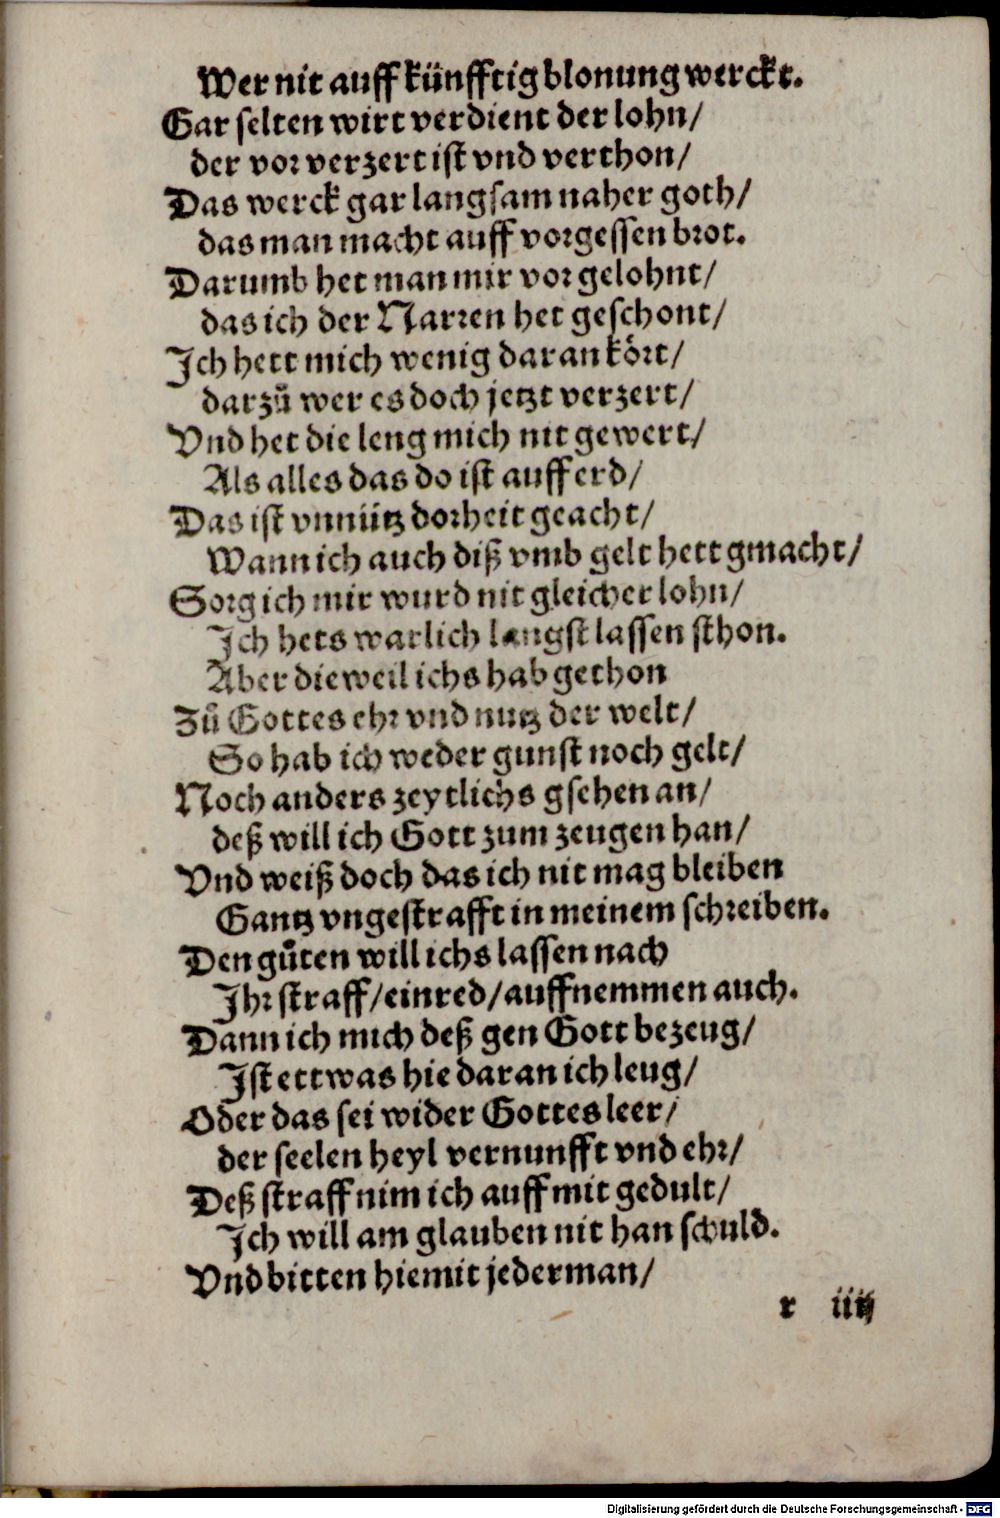 Wer nit auff künfftig blonung werckt.
Gar selten wirt verdient der lohn/
der vor verzert ist vnd verthon/
Das werck gar langsam naher goth/
das man macht auff vorgessen brot.
Darumb het man mir vor gelohnt/
das ich der Narren het geschont/
Jch hett mich wenig daran kört/
darzů wer es doch jetzt verzert/
Vnd het die leng mich nit gewert/
Als alles das do ist auff erd/
Das ist vnnütz dorheit geacht/
Wann ich auch diß vmb gelt hett gmacht/
Sorg ich mir wurd nit gleicher lohn/
Jch hets warlich langst lassen sthon.
Aber dieweil ichs hab gethon
Zů Gottes ehr vnd nutz der welt/
So hab ich weder gunst noch gelt/
Noch anders zeytlichs gsehen an/
deß will ich Gott zum zeugen han/
Vnd weiß doch das ich nit mag bleiben
Gantz vngestrafft in meinem schreiben.
Den gůten will ichs lassen nach
Jhr straff/einred/auffnemmen auch.
Dann ich mich deß gen Gott bezeug/
Jst ettwas hie daran ich leug/
Oder das sei wider Gottes leer/
der seelen heyl vernunfft vnd ehr/
Deß straff nim ich auff mit gedult/
Jch will am glauben nit han schuld.
Vnd bitten hiemit jederman/
r iiij
Digitalisierung gefördert durch die Deutsche Forschungsgemeinschaft - DFG